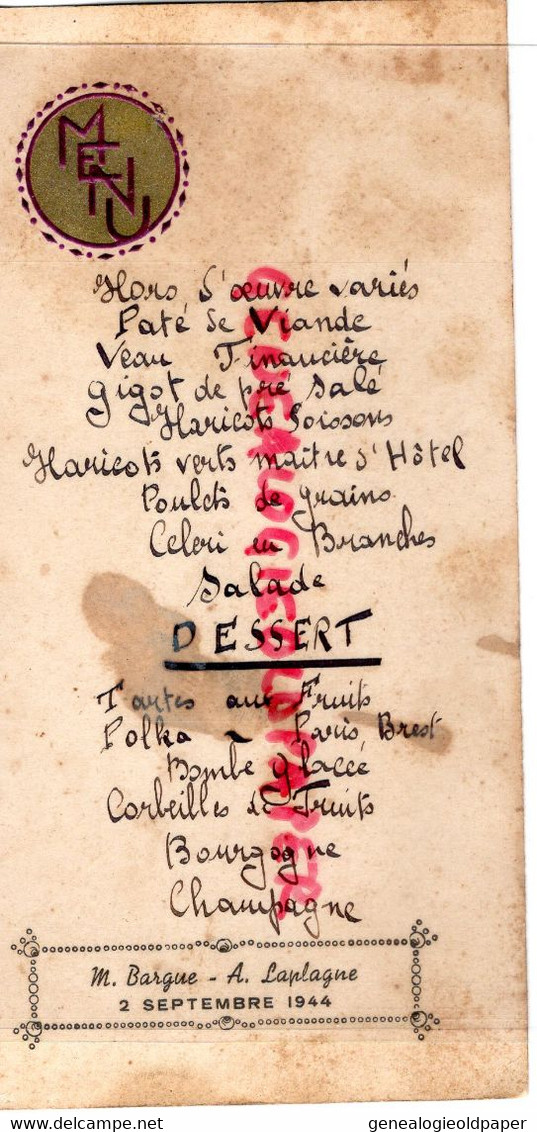 MENU
Hors d'œuvre variés
Paté de Viande
Veau Financière
Gigot de pré salé
Haricots Soissons
Haricots verts maitre d'Hôtel
Poulets de grains
Celeri en Branches
Salade
DESSERT
Tartes aux Fruits
Polka ~ Paris Brest
Bombe glaccé
Corbeilles de Fruits
Bourgogne
Champagne
M. Bargue - A. Laplagne
2 SEPTEMBRE 1944
GENEALOGIEOLDPAPER
genealogieoldpaper